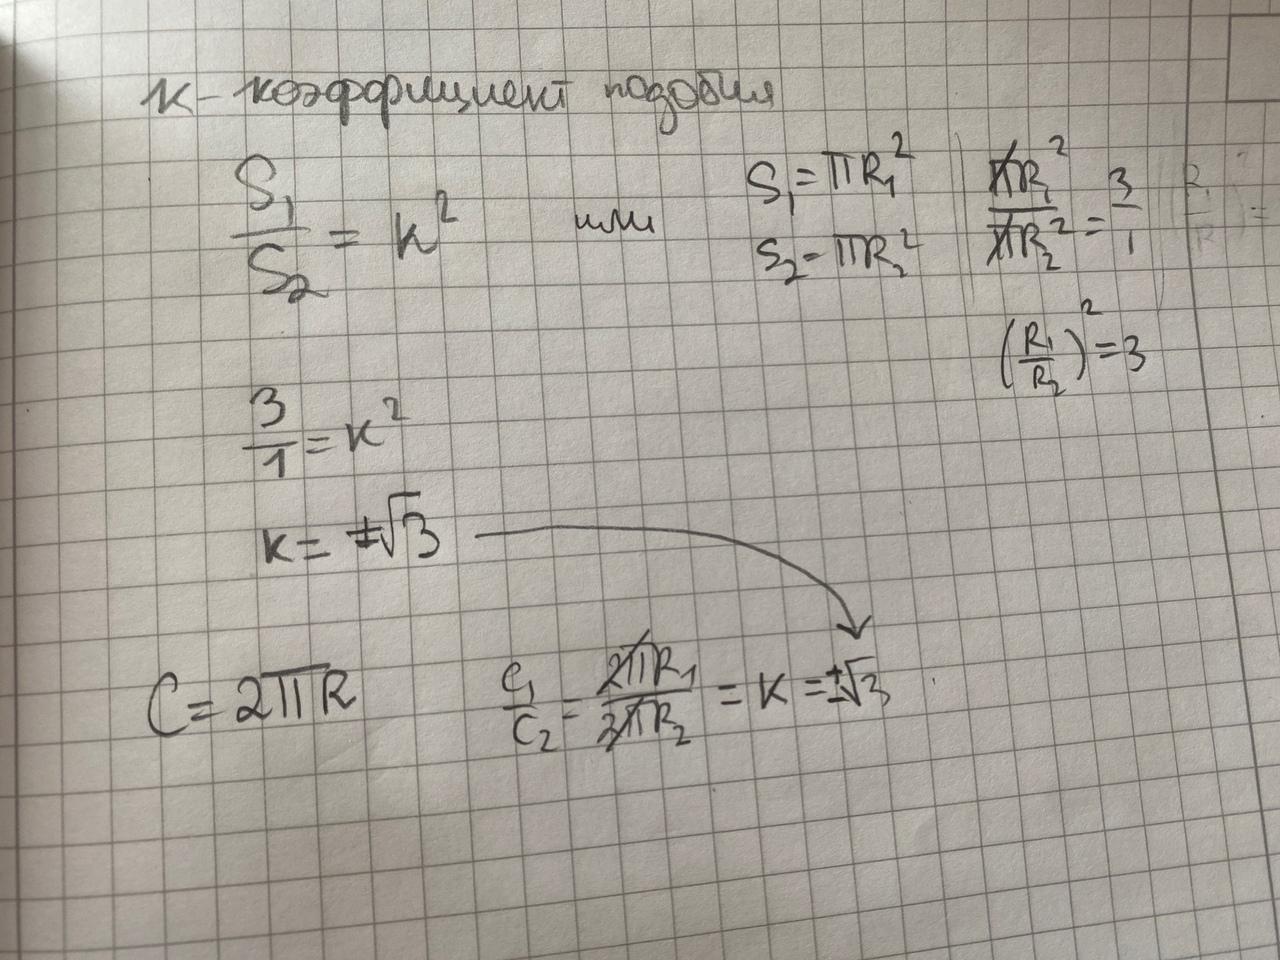 K - коэффициент подобия
S₁/S₂ = k² или
S₁ = πR₁²
S₂ = πR₂²
πR₁²/πR₂² = 3/1
(R₁/R₂)² = 3
3/1 = k²
k = ±√3
C = 2πR
C₁/C₂ = 2πR₁/2πR₂ = K = ±√3